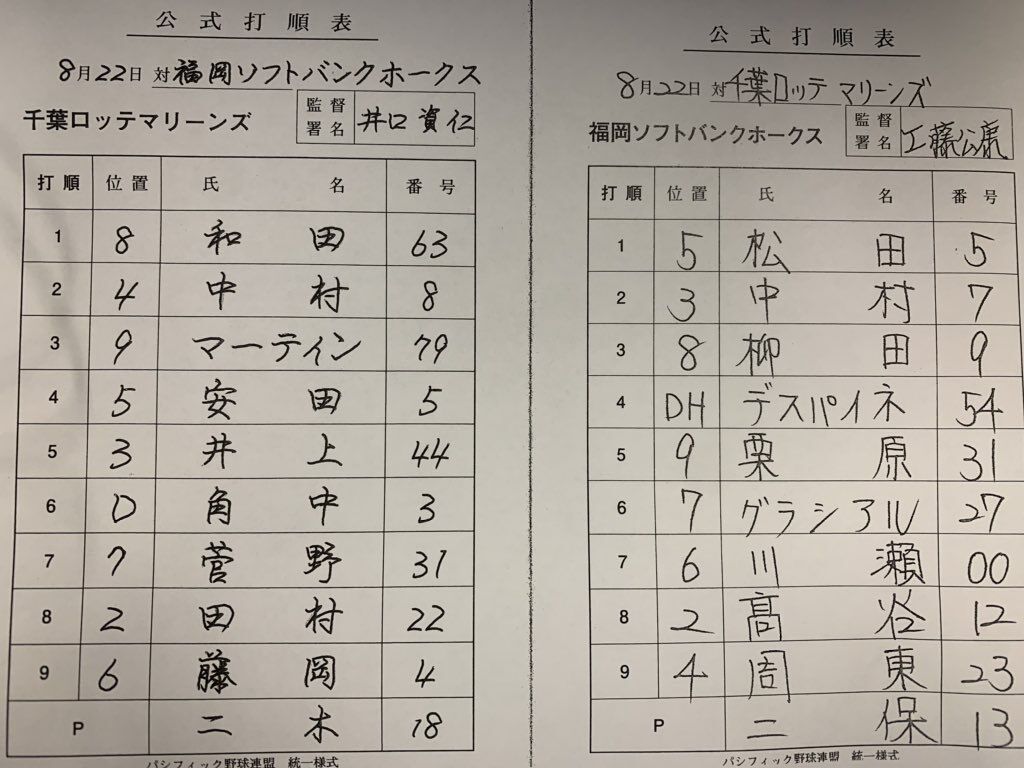 公式打順表
8月22日 対福岡ソフトバンクホークス
千葉ロッテマリーンズ 監督署名 井口資仁
打順 位置 氏名 番号
1 8 和田 63
2 4 中村 8
3 9 マーティン 79
4 5 安田 5
5 3 井上 44
6 D 角中 3
7 7 菅野 31
8 2 田村 22
9 6 藤岡 4
P 二木 18
パシフィック野球連盟 統一様式
公式打順表
8月22日 対千葉ロッテマリーンズ
福岡ソフトバンクホークス 監督署名 工藤公康
打順 位置 氏名 番号
1 5 松田 5
2 3 中村 7
3 8 柳田 9
4 DH デスパイネ 54
5 9 栗原 31
6 7 グラシアル 27
7 6 川瀬 00
8 2 髙谷 12
9 4 周東 23
P 二保 13
パシフィック野球連盟 統一様式